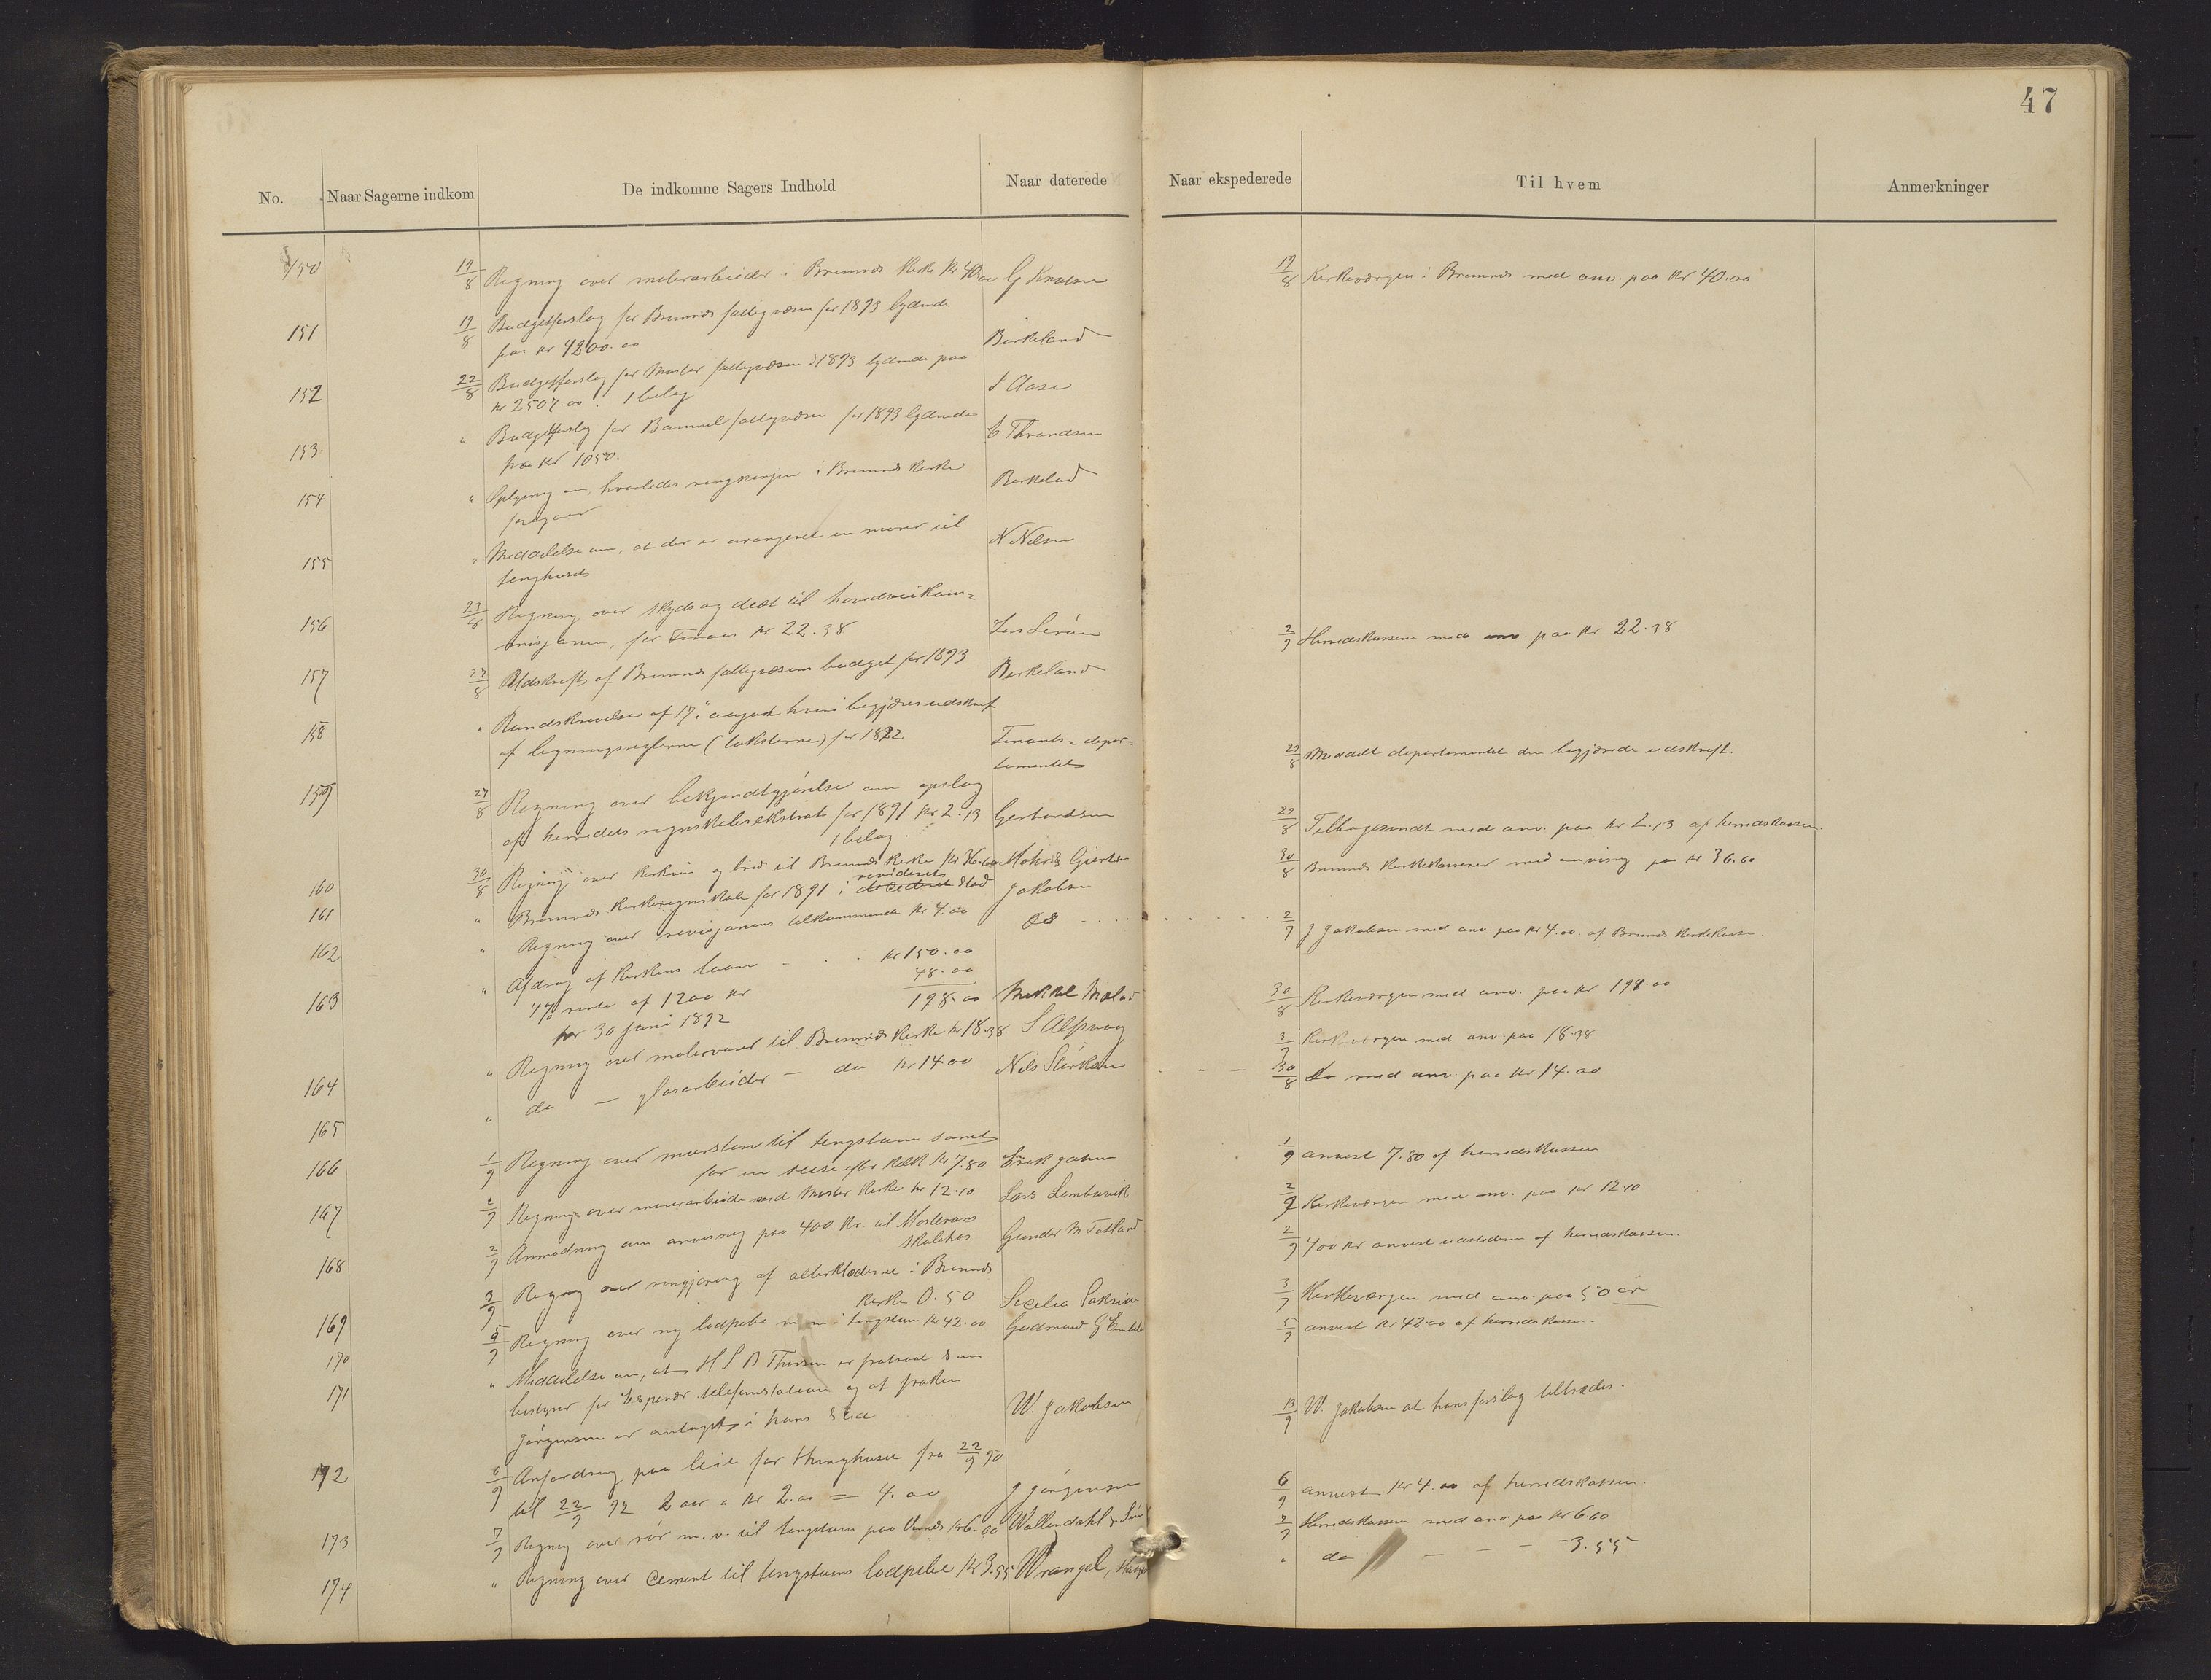 47
No.
Naar Sagerne indkom
De indkomne Sagers Indhold
Naar daterede
Naar ekspederede
Til hvem
Anmerkninger
150 19/8 Regning over malerarbeider i Bremnes Kirke Kr 40.00 G Knutsen 19/8 Kirkeværgen i Bremnes med anv. paa Kr 40.00
151 19/8 Budgetforslag for Bremnes fattigvæsen for 1893 lydende
paa Kr 4200.00 Birkeland
152 22/8 Budgetforslag for Moster fattigvæsen 1893 lydende paa
Kr 2507.00. 1 bilag S Aase
153 " Budgetforslag for Bømmel fattigvæsen for 1893 lydende
paa Kr 1050. Throndsen
154 " Oplysning om, hvorledes rengjøringen i Bremnes Kirke
foregaar Birkeland
155 " Meddelelse om, at der er arrangeret en murer til
tinghuset N Nilsen
156 23/8 Regning over skyds og diæt til hovedveikom=
misjonen, for Kr 22.38 Lars 2/9 Herredskassen med anv. paa Kr 22.38
157 27/8 Udskrift af Bremnes fattigvæsens budget for 1893 Birkeland
158 " Rundskrivelse af 17. august hvori begjæres udskrift
af ligningsreglerne (taksterne) for 1892 Finants=depar=
tementet 27/8 Meddelt departementet den begjærede udskrift.
159 27/8 Regning over bekjendtgjørelse om opslag
af herredets regnskabsekstrakt for 1891 Kr 2.13 Gerhardsen 27/8 Tilbagesendt med anv. paa Kr 2.13 af herredskassen.
1 bilag.
160 30/8 Regning over kirkevin og brød til Bremnes Kirke Kr 36.60 Mohr & Giertsen 30/8 Bremnes Kirkekasserer med anvisning paa Kr 36.60
161 " Bremnes Kirkeregnskab for 1891 i decideret revideret stad Jakobsen
162 " Regning over revisjonens tilkommende Kr 4.00 do 2/9 J Jakobsen med anv. paa Kr 4.00 af Bremnes Kirkekasse.
163 " Afdrag af Kirkens laan Kr 150.00
4% rente af 1200 Kr 48.00
pr 30 juni 1892 198.00 Mikkel 30/8 Kirkeværgen med anv. paa Kr 198.00
164 " Regning over malervarer til Bremnes Kirke Kr 18.38 S Alsvaag 3/9 Kirkeværgen med anv. paa 18.38
165 " do — glasarbeider — do Kr 14.00 Nels 30/8 Do med anv. paa Kr 14.00
166 1/9 Regning over mursten til tingstuen samt
for en reise efter kalk Kr 7.80 1/9 anvist 7.80 af herredskassen
167 2/9 Regning over murerarbeide ved Moster Kirke Kr 12.10 Lars 2/9 Kirkeværgen med anv. paa Kr 12.10
168 2/9 Anmodning om anvisning paa 400 Kr. til Mosterøens
skolehus Gunder M Totland 2/9 400 Kr anvist af herredskassen.
169 3/9 Regning over rengjøring af alterklæderne i Bremnes
Kirke 0.50 Secelia 3/9 Kirkeværgen med anv. paa 50 ør
170 5/9 Regning over ny lodpibe m.m. i tingstuen Kr 42.00 Gudmund G 5/9 anvist Kr 42.00 af herredskassen.
171 " Meddelelse om, at H S B Thorsen er fratraadt som
bestyrer for Espevær telefonstation og at frøken
Jørgensen er antaget i hans sted W. Jakobsen 13/9 W. Jakobsen at hans forslag tiltrædes.
172 6/9 Anfordring paa leie for thinghuset fra 22/9 90
til 22/9 92 2 aar a Kr 2.00 = 4.00 J Jørgensen 6/9 anvist Kr 4.00 af herredskassen.
173 7/9 Regning over rør m.v. til tingstuen paa Kr 6.60 Wallendahl & Søn 7/9 Herredskassen med anv. paa Kr 6.60
174 " Regning over Cement til tingstuens lodpibe Kr 3.55 Wrangel, " do — — — 3.55